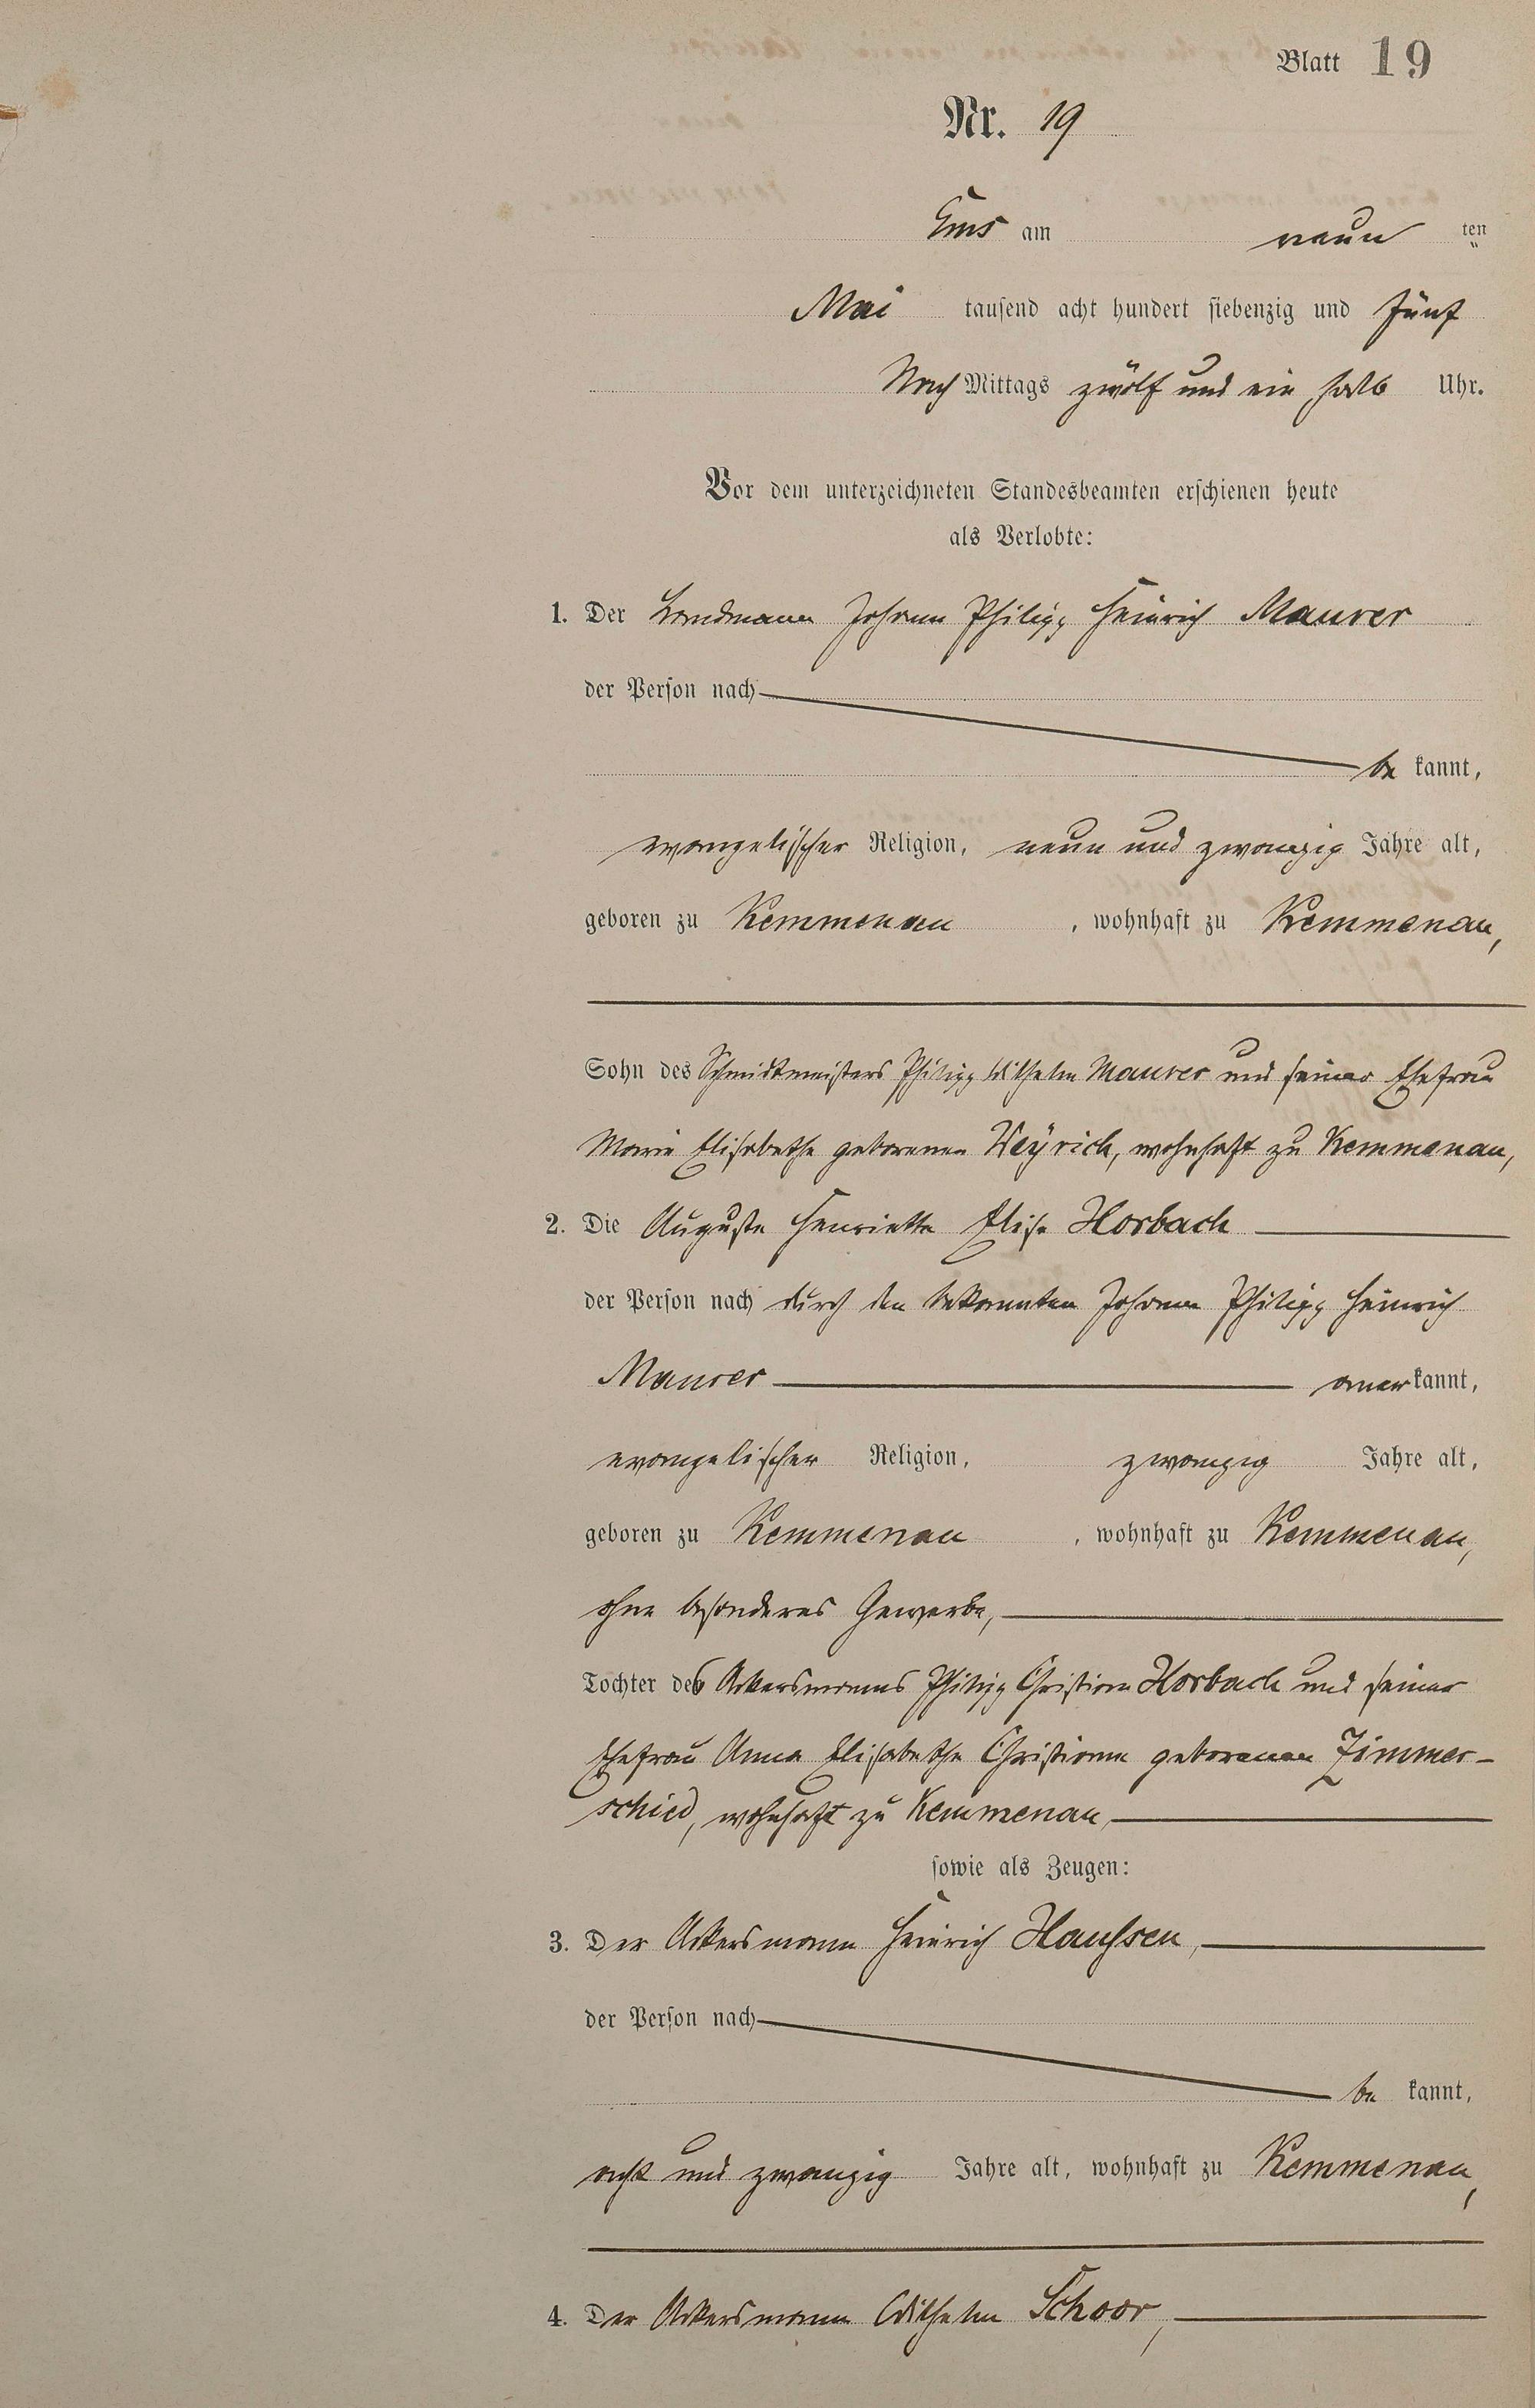 Blatt 19
Nr. 19
Ems am neun ten
Mai tausend acht hundert siebenzig und fünf
Nach Mittags zwölf und ein halb Uhr.
Vor dem unterzeichneten Standesbeamten erschienen heute
als Verlobte:
1. Der Landmann Johann Philipp Heinrich Maurer
der Person nach
be kannt,
evangelischer Religion, neun und zwanzig Jahre alt,
geboren zu Kemmenau, wohnhaft zu Kemmenau,
Sohn des Schmidtmeisters Philipp Wilhelm Maurer und seiner Ehefrau
Marie Elisabethe geborenen Weÿrich, wohnhaft zu Kemmenau,
2. Die Auguste Henriette Elise Horbach
der Person nach durch den bekannten Johann Philipp Heinrich
Maurer anerkannt,
evangelischer Religion, zwanzig Jahre alt,
geboren zu Kemmenau, wohnhaft zu Kemmenau,
ohne besonderes Gewerbe,
Tochter des Ackersmanns Philipp Christian Horbach und seiner
Ehefrau Anna Elisabethe Christiane geborenen Zimmer-
schied, wohnhaft zu Kemmenau,
sowie als Zeugen:
3. Der Ackersmann Heinrich Haußen,
der Person nach
be kannt,
acht und zwanzig Jahre alt, wohnhaft zu Kemmenau,
4. Der Ackersmann Wilhelm Schoor,